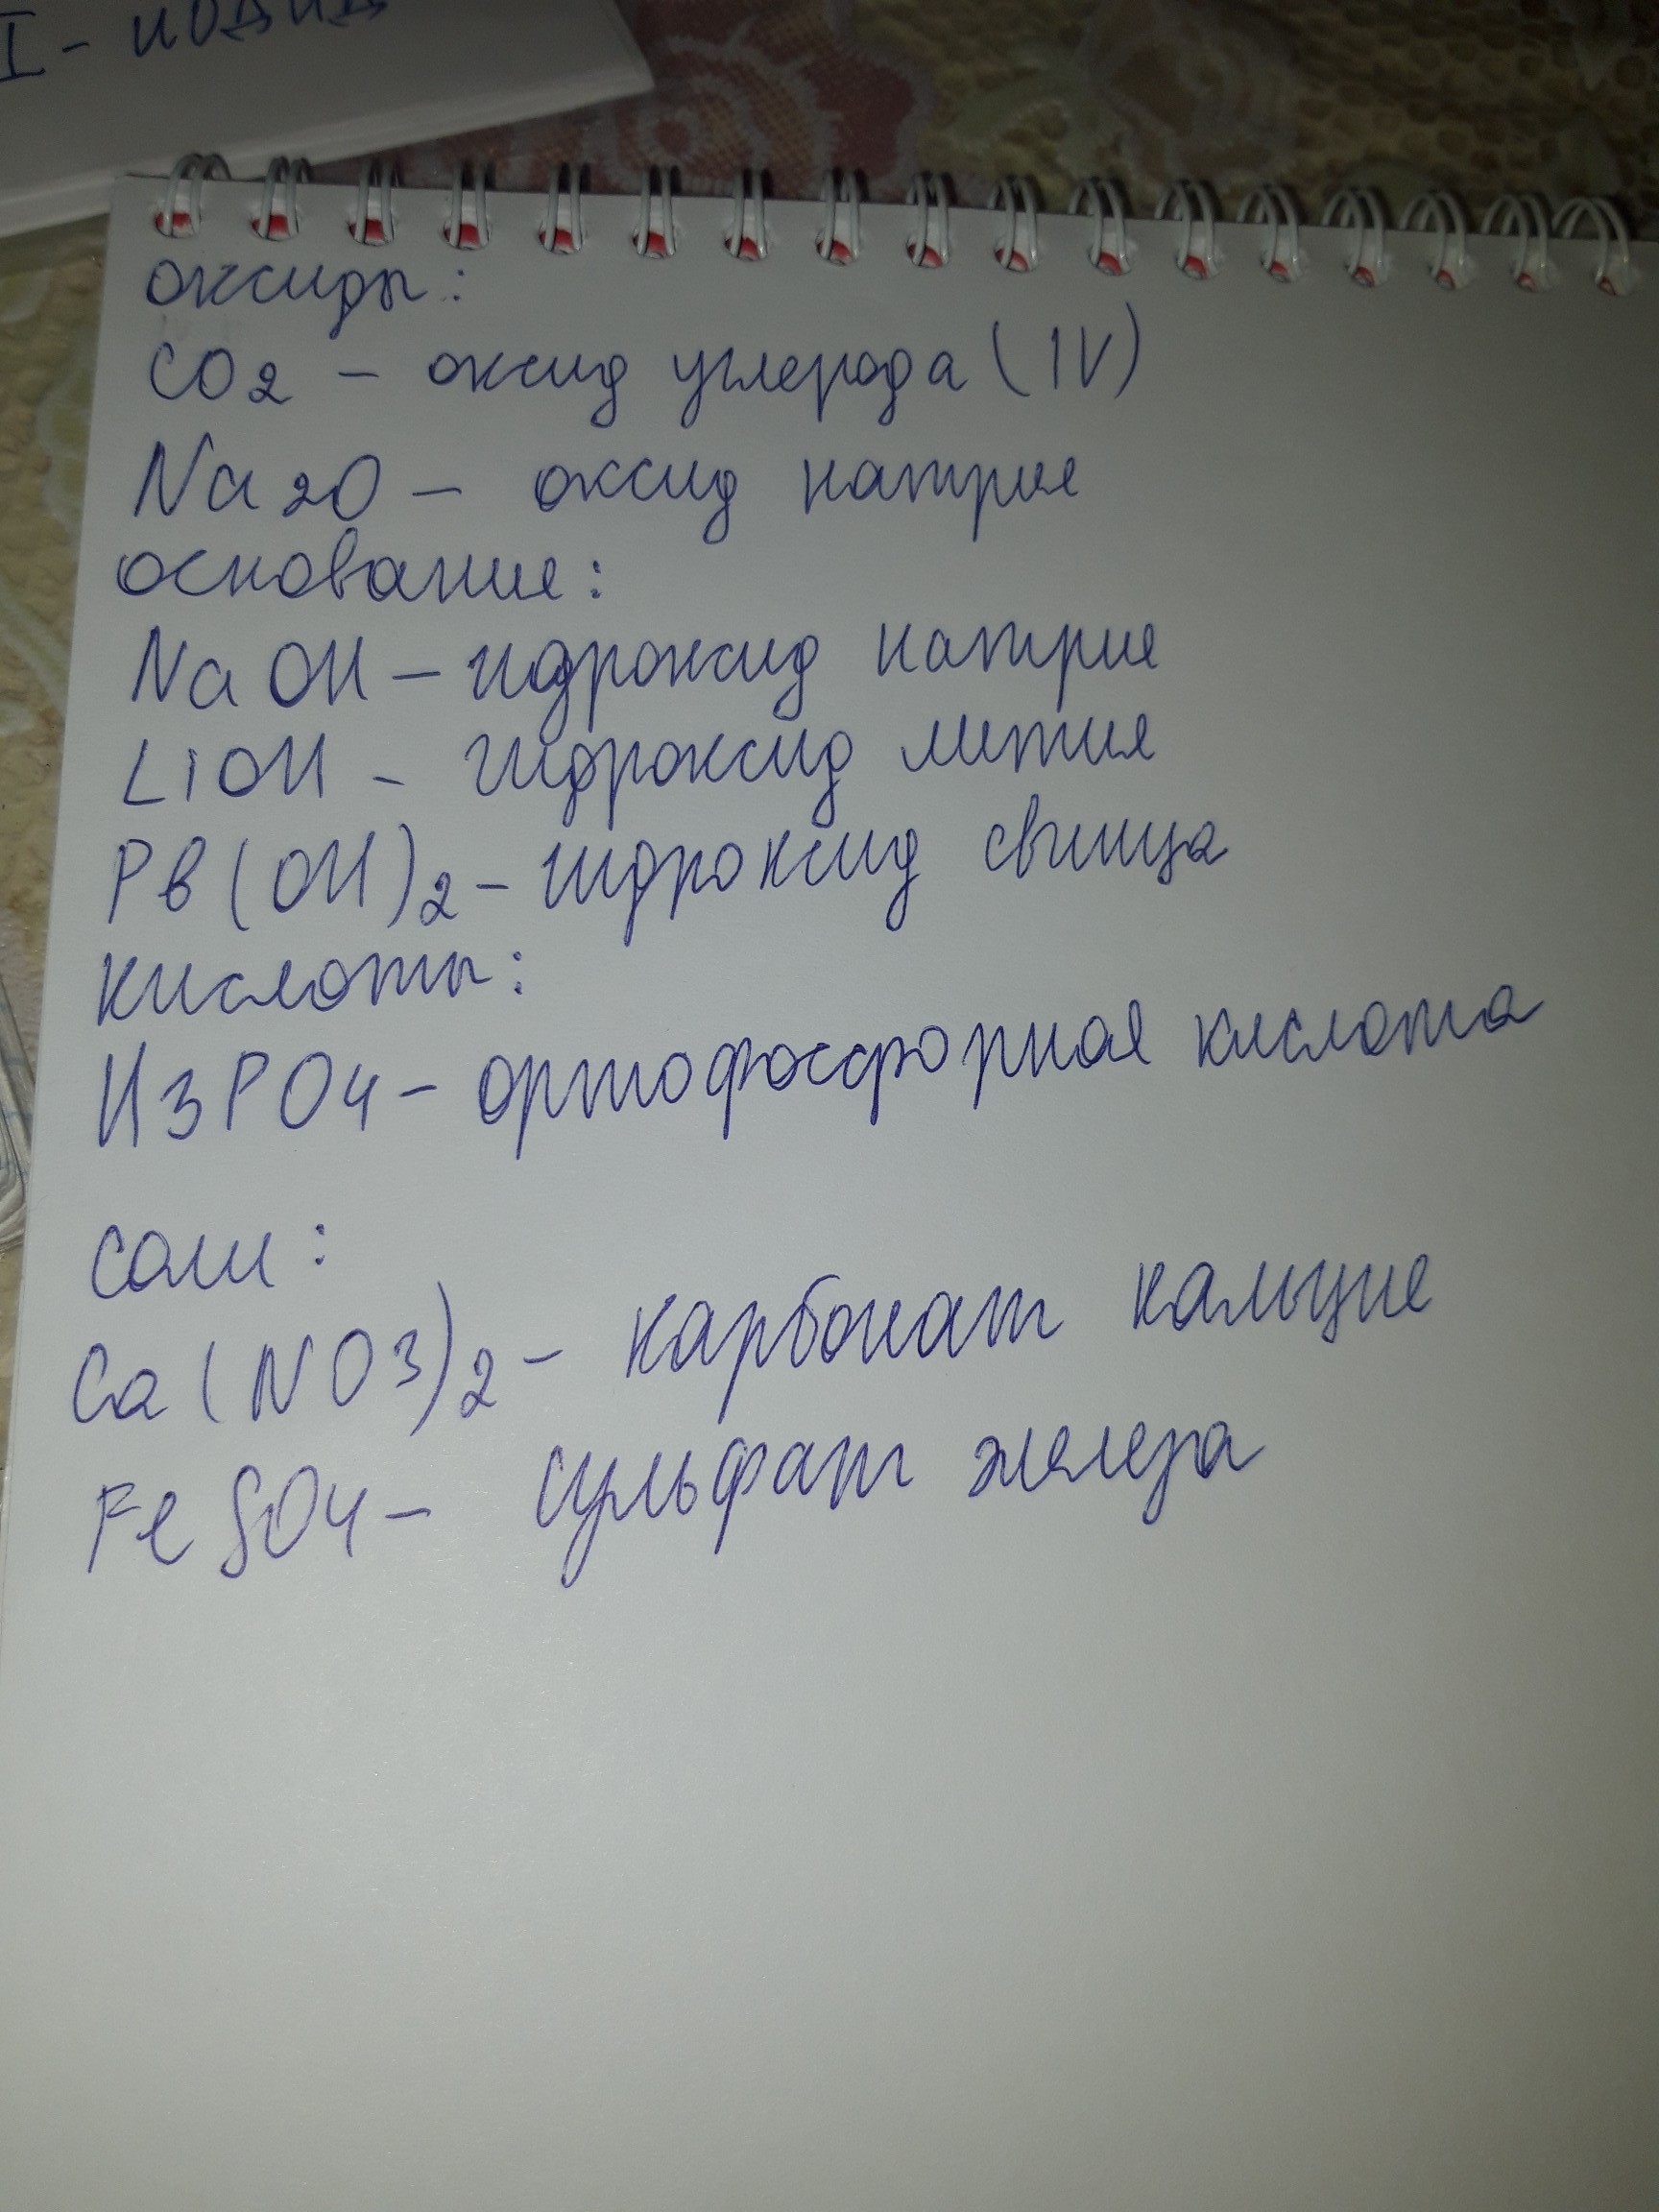 I - иодид
оксиды:
CO2 - оксид углерода (IV)
Na2O - оксид натрия
основание:
NaOH - гидроксид натрия
LiOH - гидроксид лития
Pb(OH)2 - гидроксид свинца
кислоты:
H3PO4 - ортофосфорная кислота
соли:
Ca(NO3)2 - карбонат кальция
FeSO4 - сульфат железа